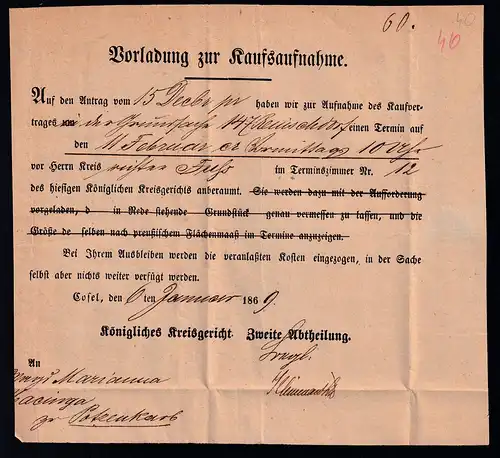 60.
40
40
Vorladung zur Kaufsaufnahme.
Auf den Antrag vom 15 Decbr pr haben wir zur Aufnahme des Kaufver-
trages in der Grundsache einen Termin auf
den 11 Februar cr Vormittags 10 Uhr
vor Herrn Kreisrichter im Terminszimmer Nr. 12
des hiesigen Königlichen Kreisgerichts anberaumt. Sie werden dazu mit der Aufforderung
vorgeladen, d in Rede stehende Grundstück genau vermessen zu lassen, und die
Größe desselben nach preußischem Flächenmaaß im Termine anzuzeigen.
Bei Ihrem Ausbleiben werden die veranlaßten Kosten eingezogen, in der Sache
selbst aber nichts weiter verfügt werden.
Cosel, den 6ten Januar 1869.
Königliches Kreisgericht. Zweite Abtheilung.
An
Marianna
zu